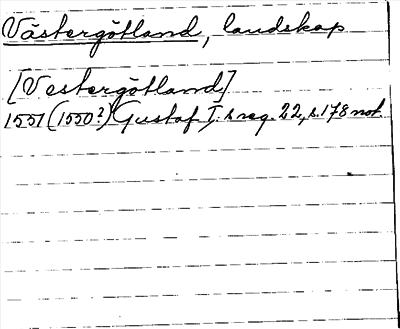 Västergötland, landskap
[Vestergötland]
1551 (1550?) Gustaf I:s reg. 22, s. 178 not.